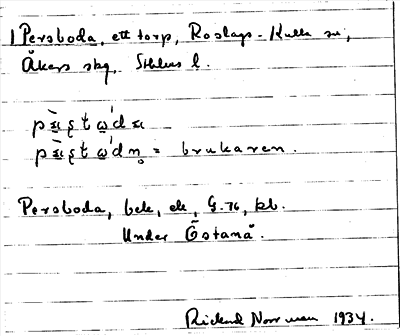 1 Persboda, ett torp, Roslags-Kulla sn,
Åkers skg, Sthlms l.
= brukaren.
Persboda, bek, ek, G. 76, kb.
Under Östanå.
Rickard Norrman 1934.